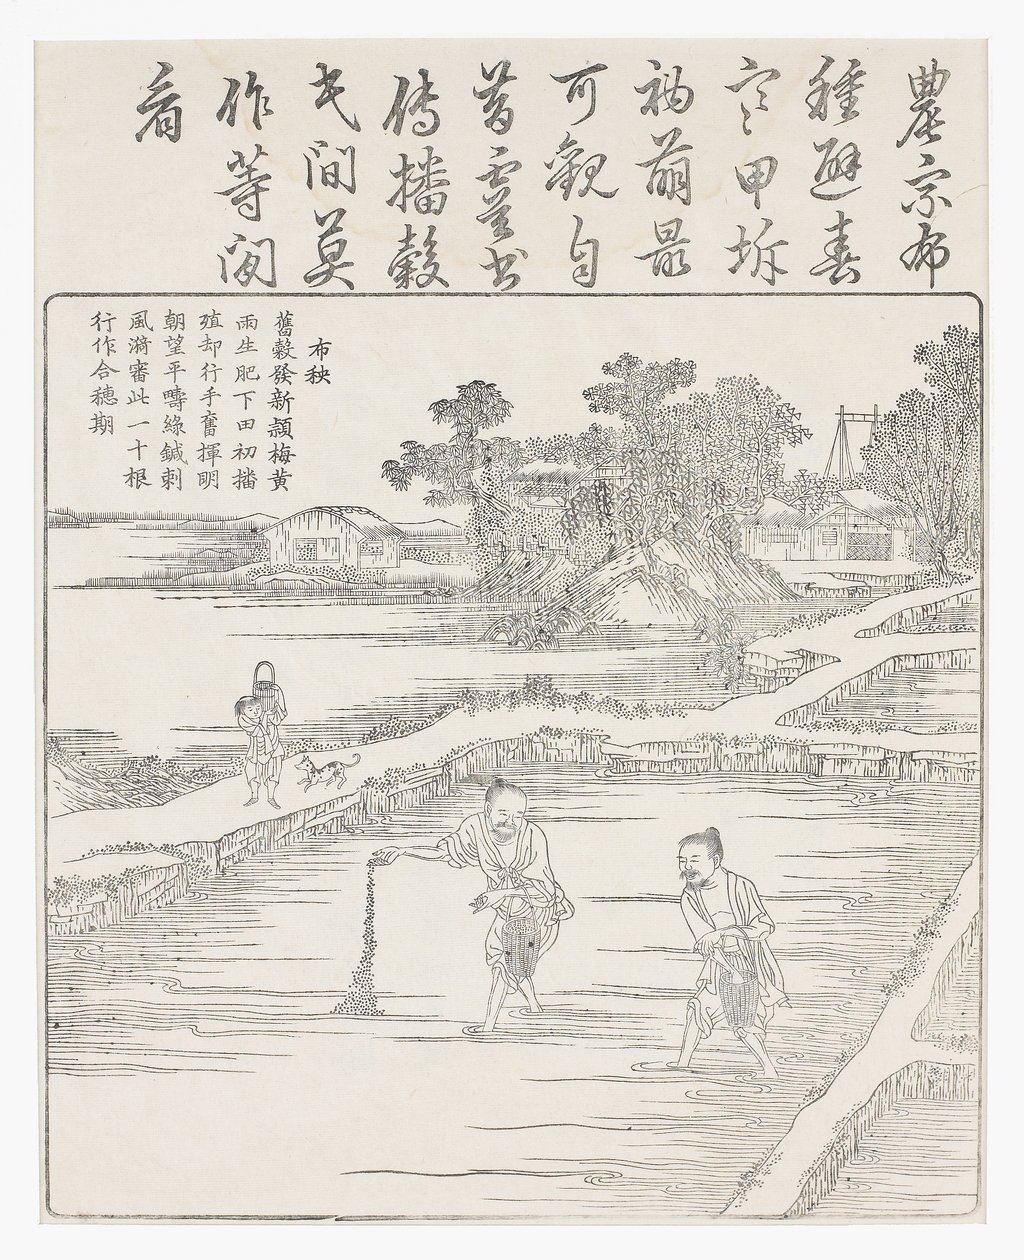 農家布
種避春
寒甲坼
初萌最
可觀自
昔虞書
傳播穀
民間莫
作等閒
看
布秧
舊穀發新穎梅黃
雨生肥下田初播
殖却行手奮揮明
朝望平疇綠鍼刺
風漪審此一十根
行作合穗期